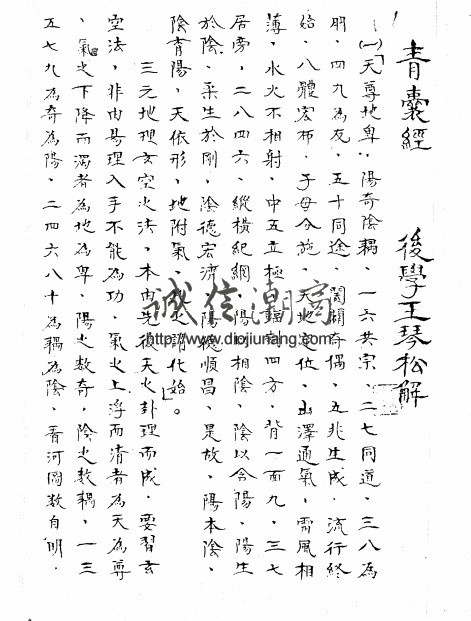 青囊經　後學王琴松解
(一)「天尊地卑,陽奇陰耦,一六共宗,二七同道,三八為
朋,四九為友,五十同途,闔闢奇偶,五兆生成,流行終
始,八體宏布,子母分施,天地定位,山澤通氣,雷風相
薄,水火不相射,中五立極,臨制四方,背一面九,三七
居旁,二八四六,縱橫紀綱,陽以相陰,陰以含陽,陽生
於陰,柔生於剛,陰德宏濟,陽德順昌,是故,陽本陰,
陰育陽,天依形,地附氣,此之謂化始」。
三元地理玄空之法,本由先後天之卦理而成,要習玄
空法,非由易理入手不能為功,氣之上浮而清者為天為尊
,氣之下降而濁者為地為卑,陽之數奇,陰之數耦,一三
五七九為奇為陽,二四六八十為耦為陰,看河圖數自明.
誠信潮商